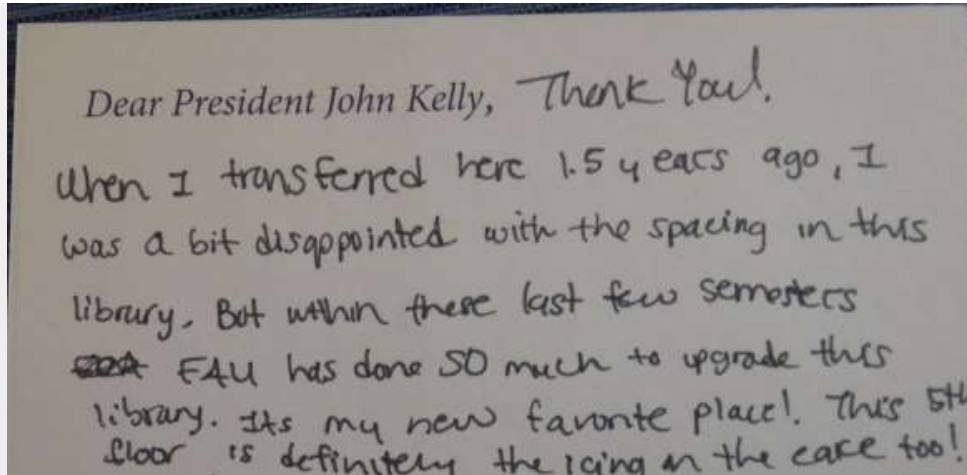 Dear President John Kelly, Thank You!
When I transferred here 1.5 years ago, I
was a bit disappointed with the spacing in this
library. But within these last few semesters
FAU has done SO much to upgrade this
library. Its my new favorite place! This 5th
floor is definitely the icing on the cake too!